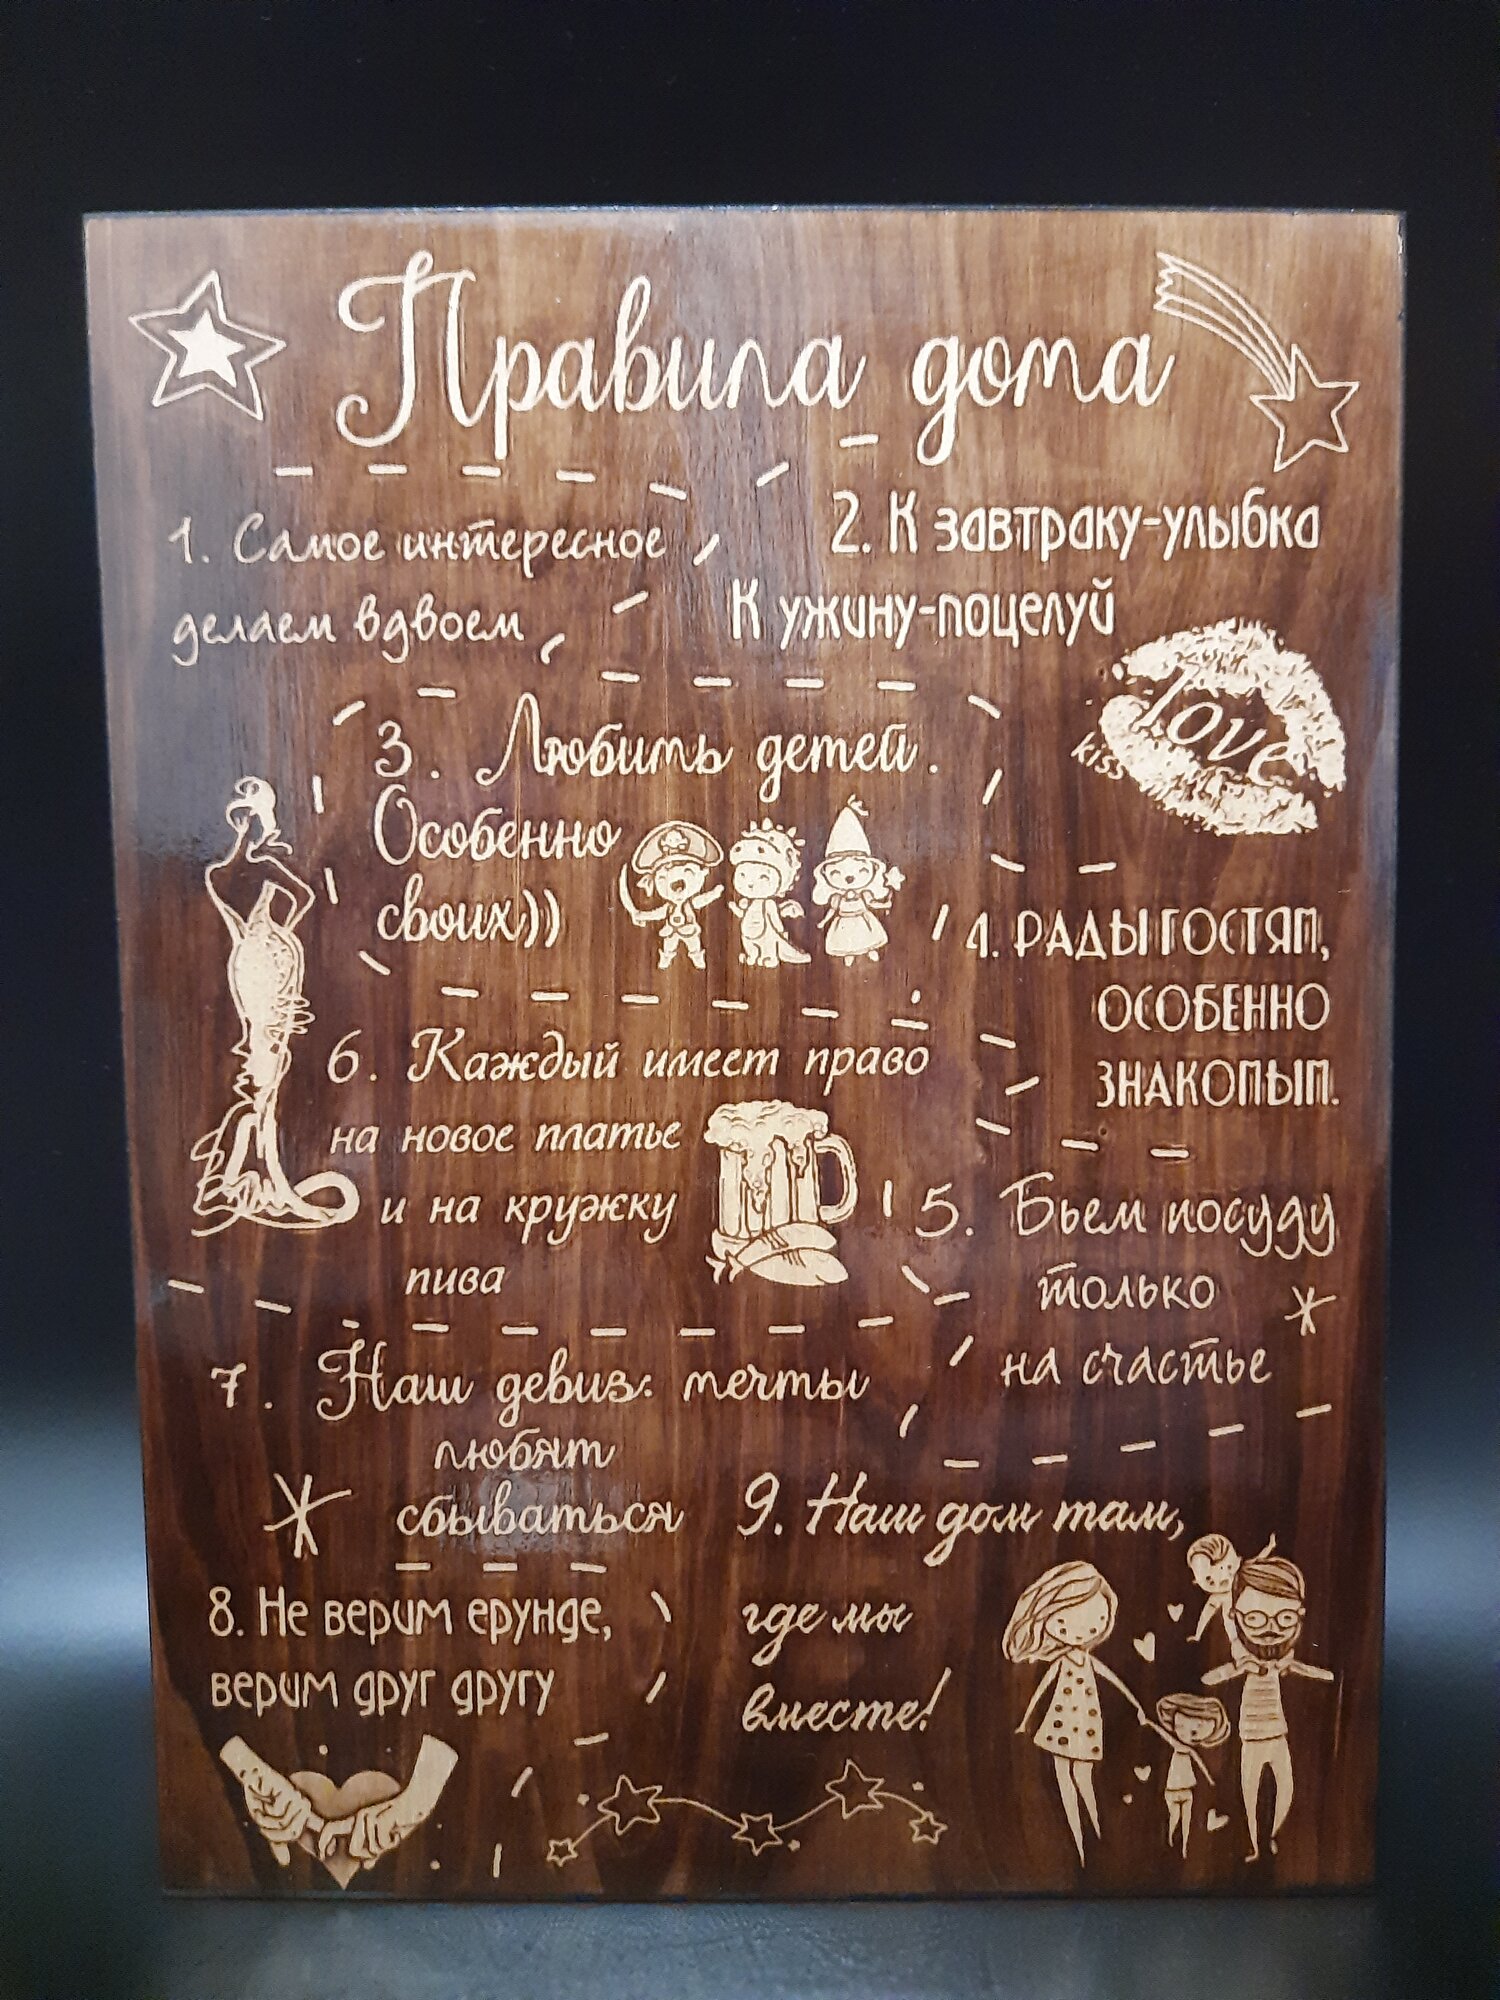 Правила дома
1. Самое интересное
делаем вдвоем
2. К завтраку-улыбка
К ужину-поцелуй
love
kiss
3. Любить детей.
Особенно
своих))
4. РАДЫ ГОСТЯМ,
ОСОБЕННО
ЗНАКОМЫМ.
5. Бьем посуду
только
на счастье
6. Каждый имеет право
на новое платье
и на кружку
пива
7. Наш девиз: мечты
любят
сбываться
8. Не верим ерунде,
верим друг другу
9. Наш дом там,
где мы
вместе!